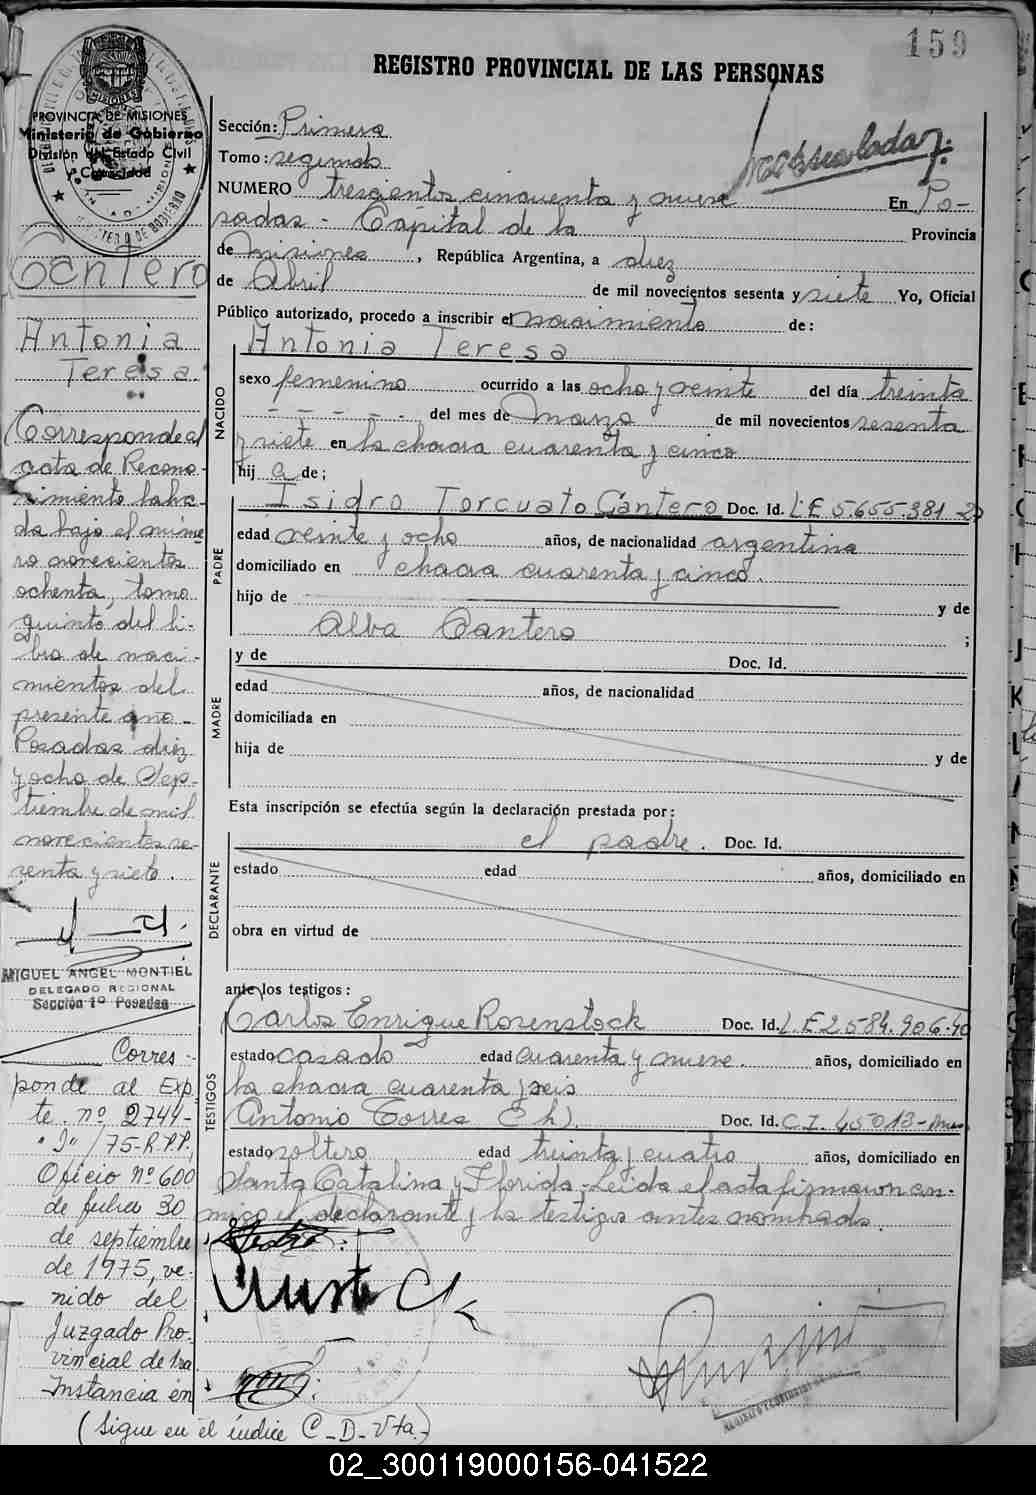 159
REGISTRO PROVINCIAL DE LAS PERSONAS
PROVINCIA DE MISIONES
Ministerio de Gobierno
División del Estado Civil
y Capacidad
Sección: Primera
Tomo: segundo
NUMERO trescientos cincuenta y nueve En Po-
sadas - Capital de la Provincia
de Misiones, República Argentina, a diez
de Abril de mil novecientos sesenta y siete Yo, Oficial
Público autorizado, procedo a inscribir el nacimiento de:
Antonia Teresa
NACIDO
sexo femenino ocurrido a las ocho y veinte del día treinta
- - - - - del mes de Marzo de mil novecientos sesenta
y siete en la chacra cuarenta y cinco
hij a de;
PADRE
Isidro Torcuato Cantero Doc. Id. L.E 5.655.381
edad veinte y ocho años, de nacionalidad argentina
domiciliado en chacra cuarenta y cinco.
hijo de y de
Alba Cantero ;
MADRE
y de Doc. Id.
edad años, de nacionalidad
domiciliada en
hija de y de
Esta inscripción se efectúa según la declaración prestada por:
DECLARANTE
el padre. Doc. Id.
estado edad años, domiciliado en
obra en virtud de
ante los testigos:
TESTIGOS
Carlos Enrique Rosenstock Doc. Id. L.E 2.584.906.40
estado casado edad cuarenta y nueve. años, domiciliado en
la chacra cuarenta y seis
Antonio Torres (h). Doc. Id. C.I. 45013-
estado soltero edad treinta y cuatro años, domiciliado en
Santa Catalina y Florida - Leida el acta firmaron con-
migo el declarante y los testigos antes nombrados.
Cantero
Antonia
Teresa.
Corresponde al
acta de Recono-
cimiento labra-
da bajo el núme
ro novecientos
ochenta, tomo
quinto del li-
bro de naci-
mientos del
presente año -
Posadas diez
y ocho de Sep-
tiembre de mil
novecientos se-
senta y siete.
MIGUEL ANGEL MONTIEL
DELEGADO REGIONAL
Sección 1º Posadas
Corres-
ponde al Exp
te. nº 2744-
"J"/75-R.P.P.,
Oficio Nº 600
de fecha 30
de septiembre
de 1975, ve-
nido del
Juzgado Pro-
vincial de 1ra
Instancia en
(sigue en el índice C-D-Vta.)
02_300119000156-041522